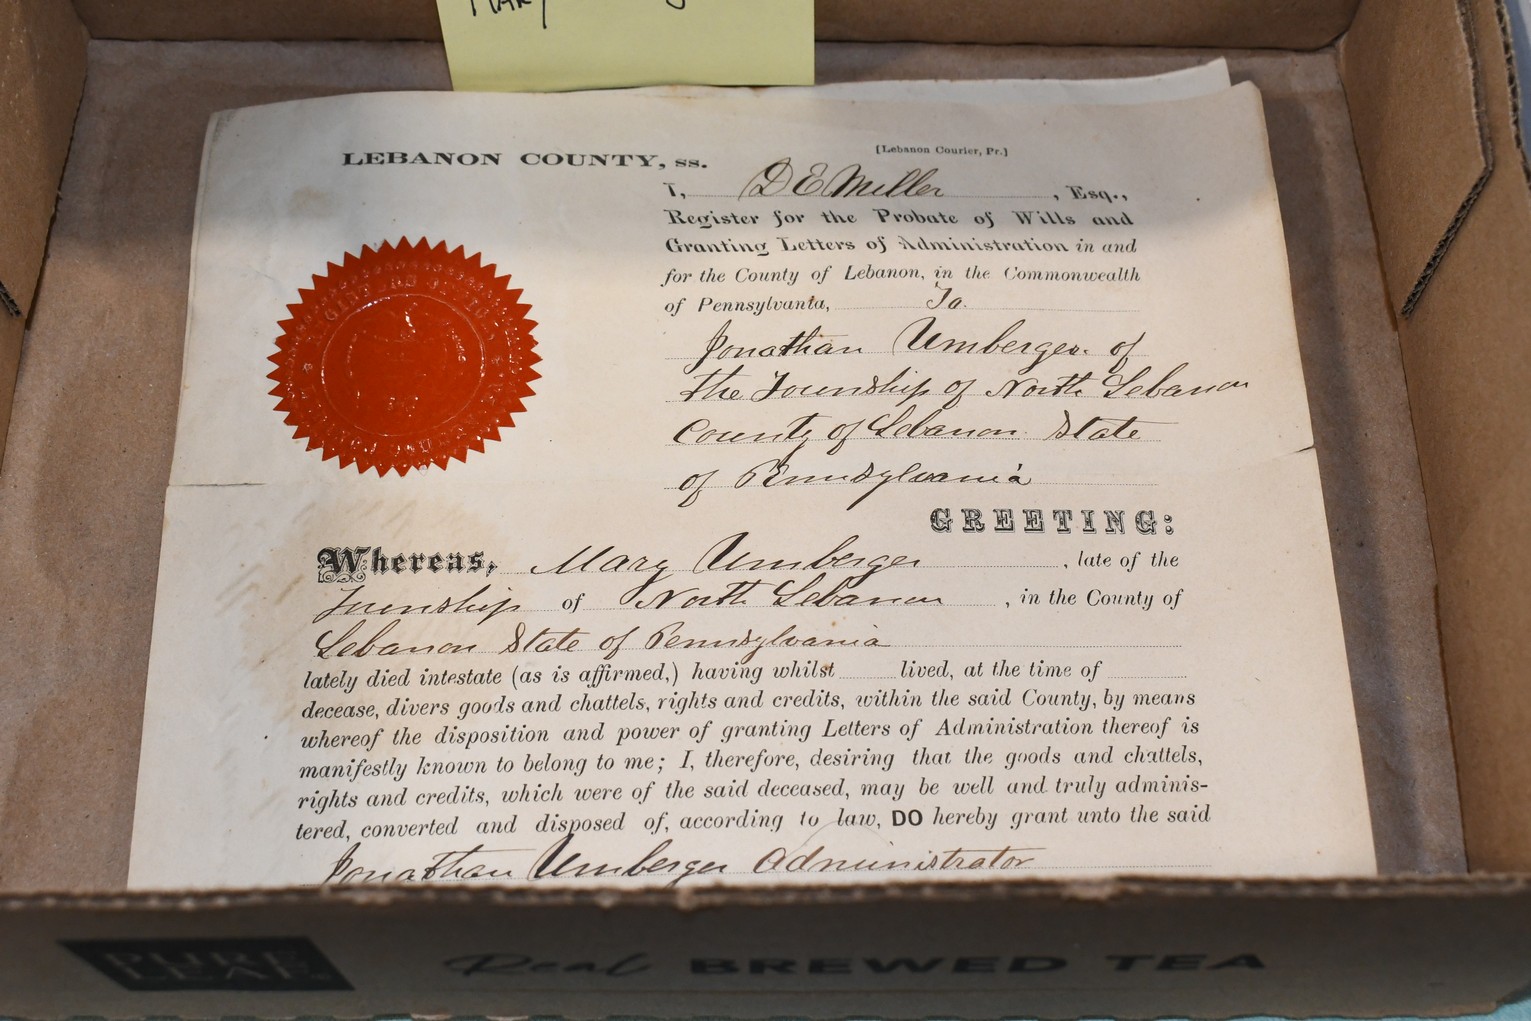 MARY
LEBANON COUNTY, ss.
[Lebanon Courier, Pr.]
I, D E Miller, Esq.,
Register for the Probate of Wills and
Granting Letters of Administration in and
for the County of Lebanon, in the Commonwealth
of Pennsylvania, To
Jonathan Umberger of
the Township of North Lebanon
County of Lebanon State
of Pennsylvania
GREETING:
Whereas, Mary Umberger, late of the
Township of North Lebanon, in the County of
Lebanon State of Pennsylvania
lately died intestate (as is affirmed,) having whilst lived, at the time of
decease, divers goods and chattels, rights and credits, within the said County, by means
whereof the disposition and power of granting Letters of Administration thereof is
manifestly known to belong to me; I, therefore, desiring that the goods and chattels,
rights and credits, which were of the said deceased, may be well and truly adminis-
tered, converted and disposed of, according to law, DO hereby grant unto the said
Jonathan Umberger Administrator
PURE
LEAF
Real BREWED TEA